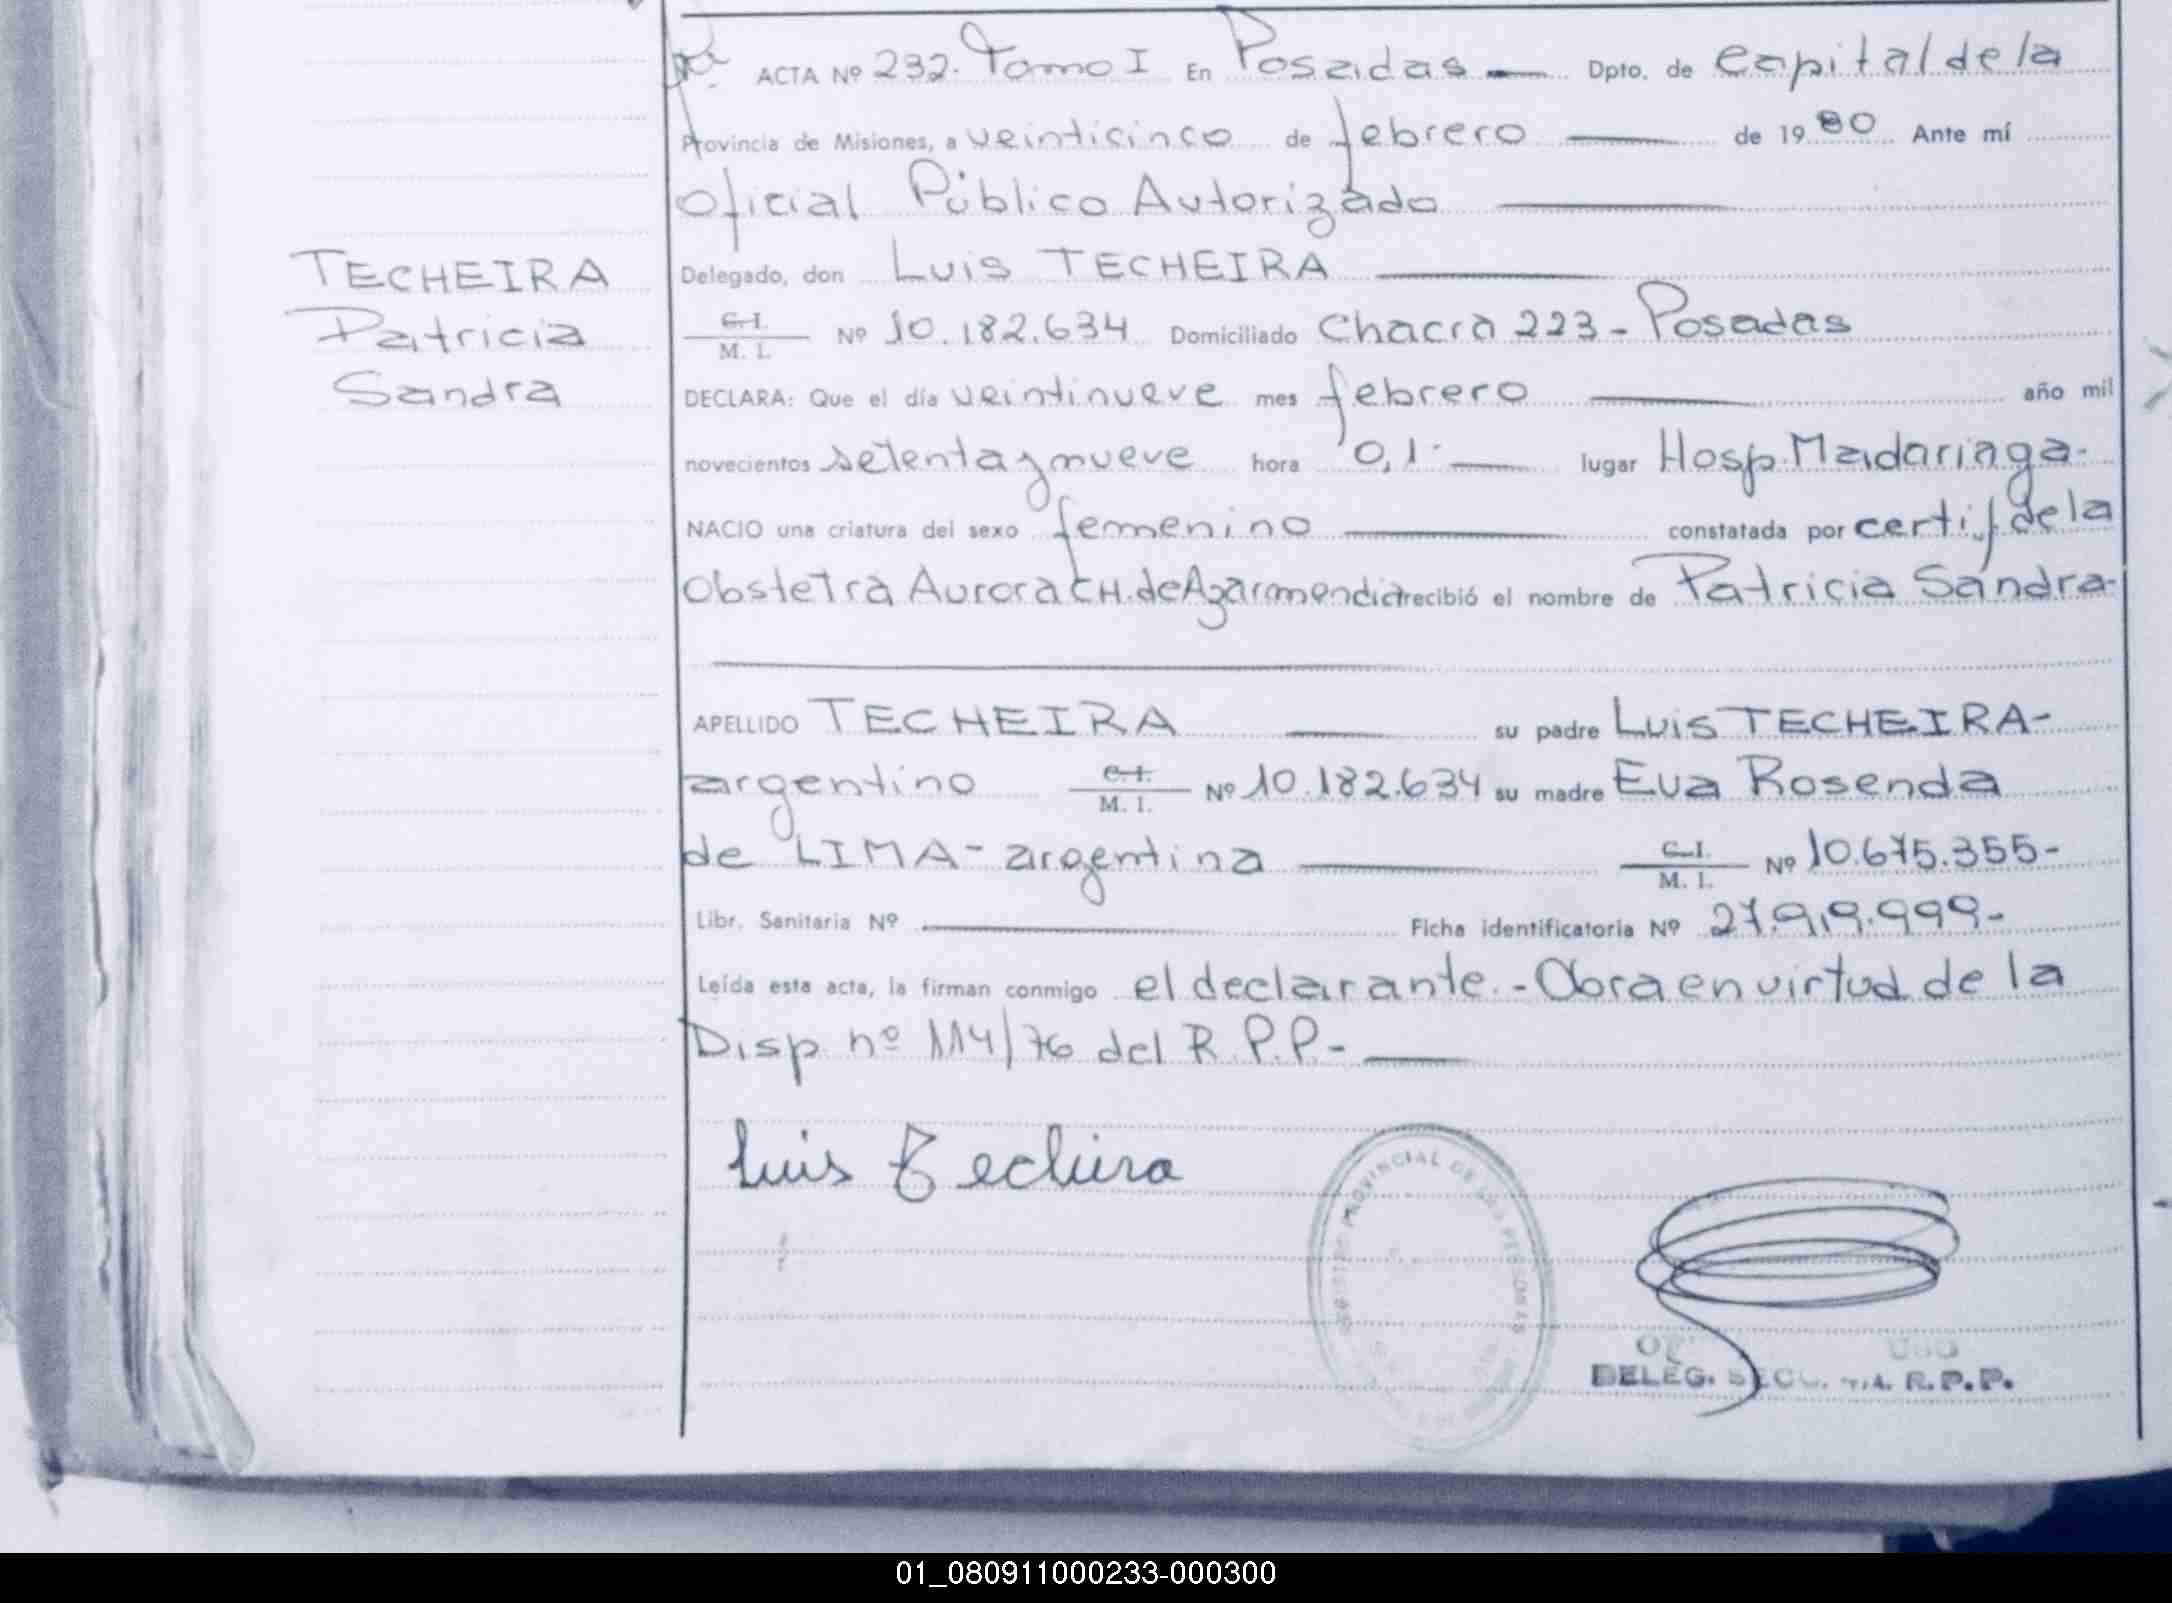 ACTA Nº 232. Tomo I En Posadas Dpto. de Capital de la
Provincia de Misiones, a veinticinco de febrero de 1980 Ante mí
Oficial Público Autorizado
Delegado, don Luis TECHEIRA
C.I. M. I. Nº 10.182.634 Domiciliado Chacra 223 - Posadas
DECLARA: Que el día veintinueve mes febrero año mil
novecientos setenta y nueve hora 0,1. lugar Hosp. Madariaga.
NACIO una criatura del sexo femenino constatada por certif. de la
Obstetra Aurora CH. de Azarmendia recibió el nombre de Patricia Sandra-
TECHEIRA
Patricia
Sandra
APELLIDO TECHEIRA su padre Luis TECHEIRA-
argentino C.I. M. I. Nº 10.182.634 su madre Eva Rosenda
de LIMA - argentina C.I. M. I. Nº 10.675.355-
Libr. Sanitaria Nº Ficha identificatoria Nº 27.919.999-
Leída esta acta, la firman conmigo el declarante. - Obra en virtud de la
Disp nº 114/76 del R.P.P.-
Luis Techeira
PROVINCIAL DE LAS PERSONAS
DELEG. R.P.P.
01_080911000233-000300